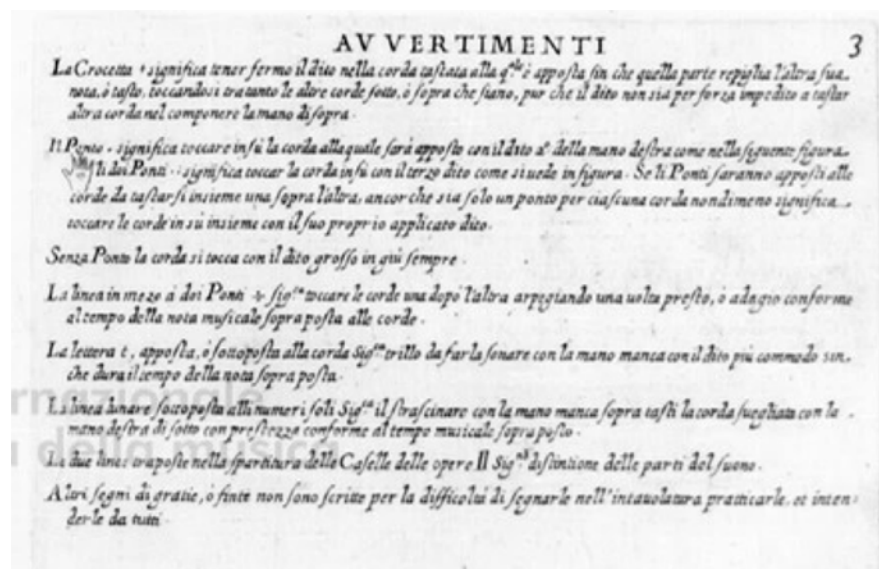 AVVERTIMENTI 3
La Crocetta + significa tener fermo il dito nella corda tastata alla q.le è apposta fin che quella parte repiglia l'altra sua
nota, ò tasto, toccandosi tratanto le altre corde sotto, ò sopra che siano, pur che il dito non sia per forza impedito a tastar
altra corda nel componere la mano di sopra.
Il Ponto . significa toccare in sù la corda alla quale sarà apposto con il dito 2.o della mano destra come nella seguente figura
li doi Ponti : significa toccar la corda in sù con il terzo dito come si uede in figura. Se li Ponti saranno apposti alle
corde da tastarsi insieme una sopra l'altra, ancor che sia solo un ponto per ciascuna corda nondimeno significa
toccare le corde in sù insieme con il suo proprio applicato dito.
Senza Ponto la corda si tocca con il dito grosso in giù sempre.
La linea in mezo à doi Ponti ÷ sig.ca toccare le corde una dopò l'altra arpegiando una uolta presto, o adagio conforme
al tempo della nota musicale sopra posta alle corde.
La lettera t, apposta, ò sottoposta alla corda Sig.ca trillo da farla sonare con la mano manca con il dito più commodo sin
che dura il tempo della nota sopra posta.
La linea lunare sottoposta alli numeri soli Sig.ca il strascinare con la mano manca sopra tasti la corda suegliata con la
mano destra di sotto con prestezza conforme al tempo musicale sopra posto.
Le due linee traposte nella spartitura delle Caselle delle opere || Sig.no distintione delle parti del suono.
Altri segni di gratie, ò finte non sono scritte per la difficoltà di segnarle nell'intauolatura pratticarle, et inten
derle da tutti.
rnazionale
della musica